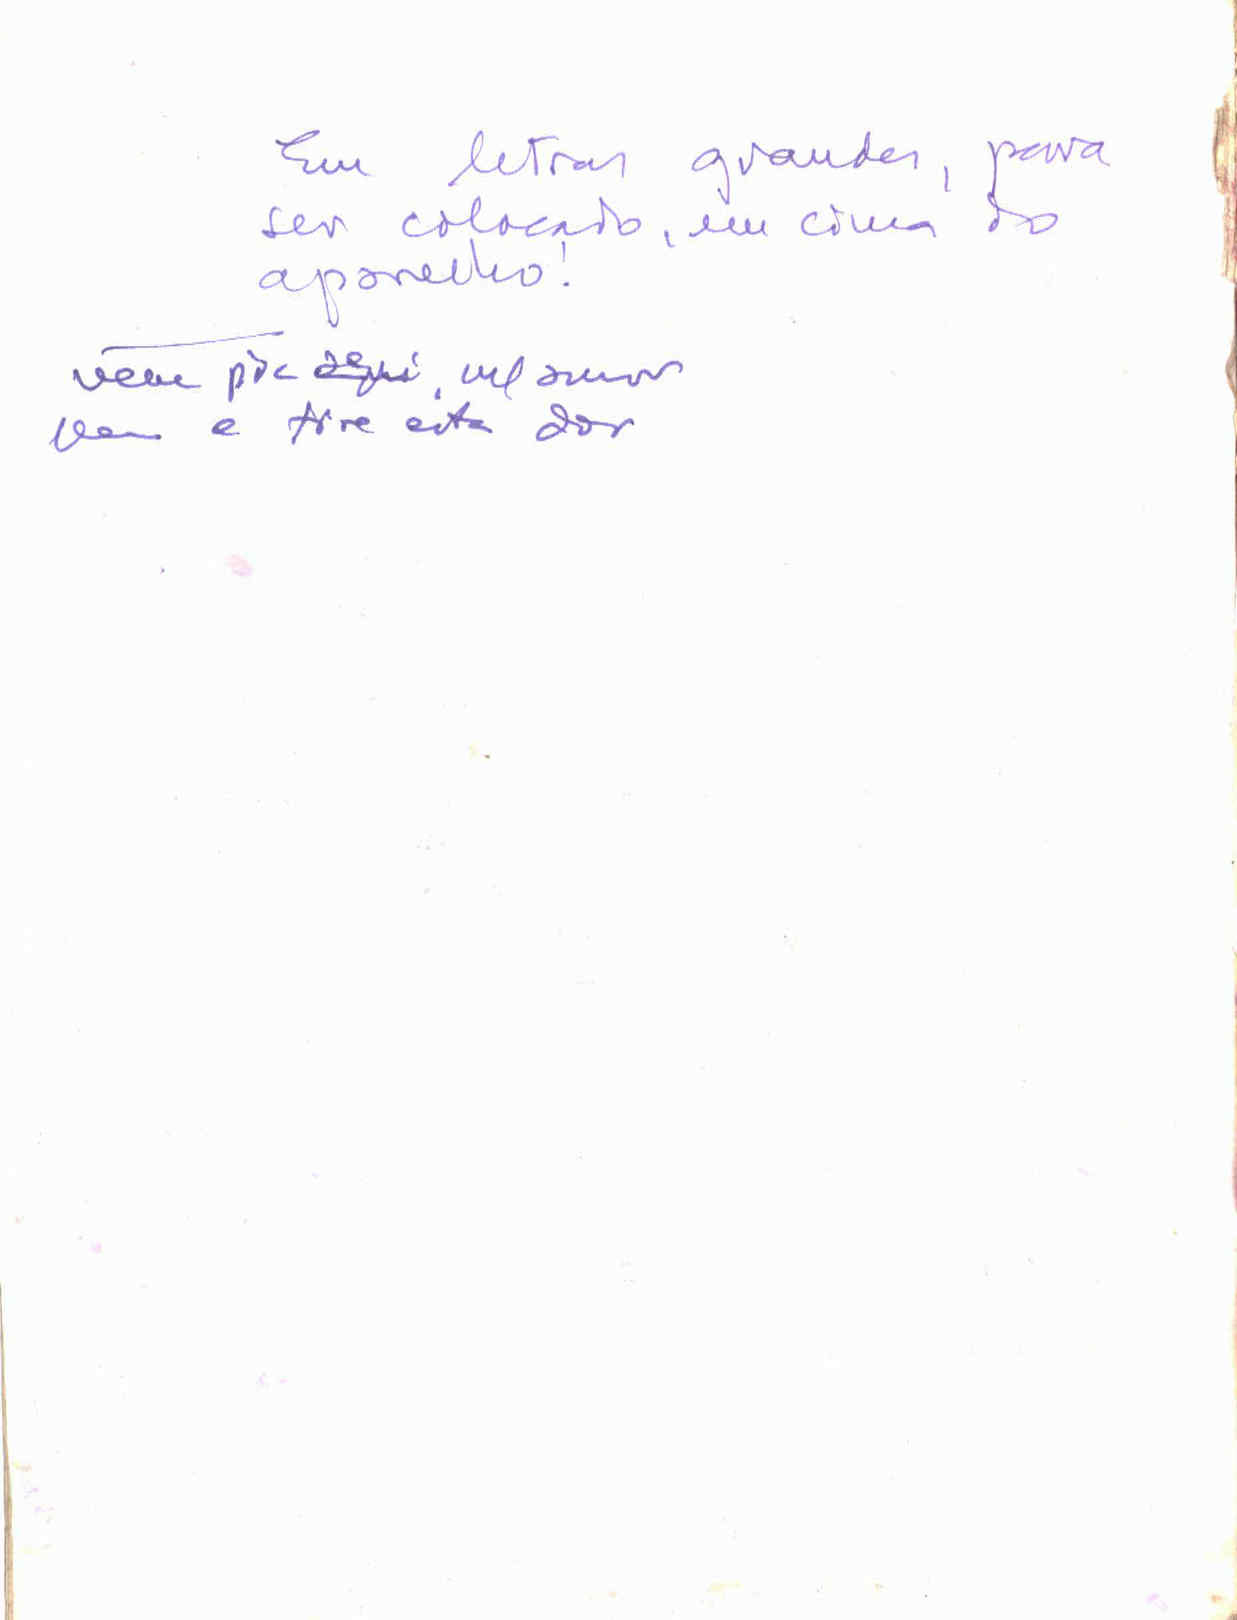 Em letras grandes, para
ser colocado, em cima do
aparelho!
vem pra aqui, meu amor
vem e tire esta dor